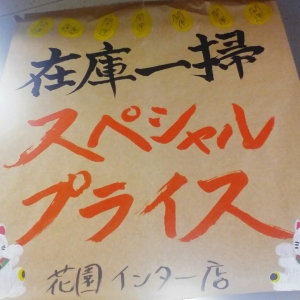 在庫一掃
スペシャル
プライス
花園インター店